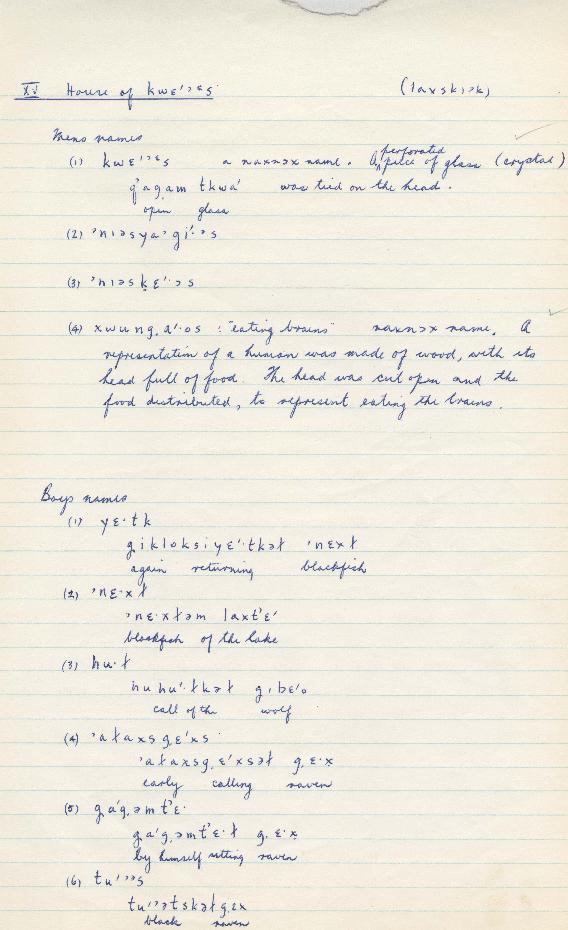 XV House of kwɛ'ɔɛs (laxskiək)
Mens names
(1) kwɛ'ɔɛs a naxnɔx name. A perforated piece of glass (crystal)
q'agam tkwa' was tied on the head.
open glass
(2) 'niəsya'gi'·ɔs
(3) 'niəskɛ'·ɔs
(4) xwung,a'·os : "eating brains" naxnɔx name. A
representation of a human was made of wood, with its
head full of food. The head was cut open and the
food distributed, to represent eating the brains.
Boys names
(1) yɛ·tk
gikloksiyɛ'·tkəł 'nɛxł
again returning blackfish
(2) 'nɛ·xł
'nɛ·xłəm laxt'ɛ'
blackfish of the lake
(3) hu·ł
huhu'·łkəł g,ibɛ'o
call of the wolf
(4) 'ałaxsg,ɛ'xs
'ałaxsg,ɛ'xsəł g,ɛ·x
early calling raven
(5) ga'g,əmt'ɛ·
ga'g,əmt'ɛ·ł g,ɛ·x
by himself sitting raven
(6) tu'ɔəs
tu'ɔətskəłg,ɛx
black raven